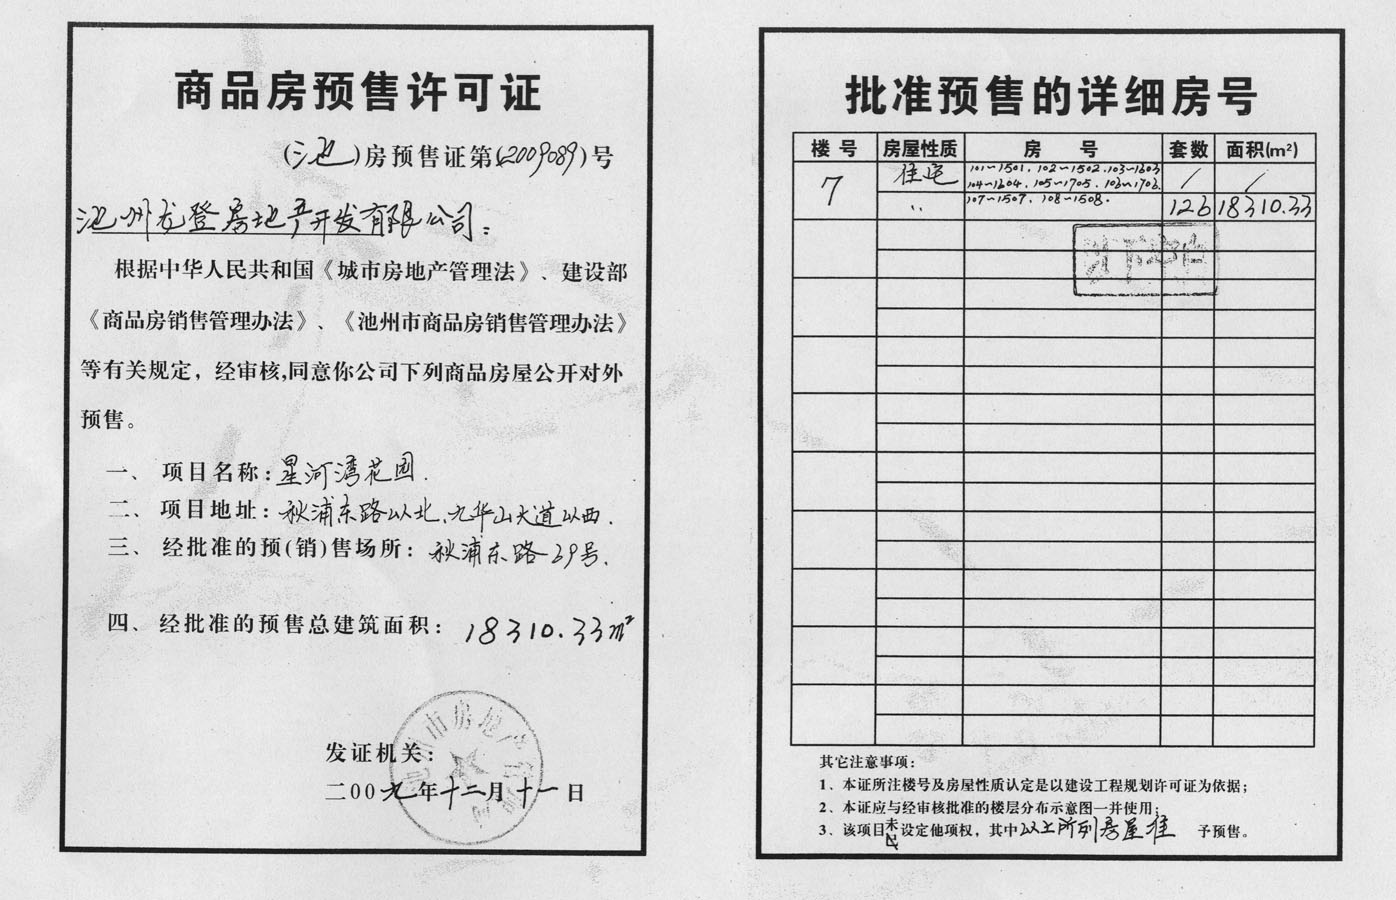 商品房预售许可证
(池)房预售证第(2009089)号
池州龙登房地产开发有限公司：
根据中华人民共和国《城市房地产管理法》、建设部
《商品房销售管理办法》、《池州市商品房销售管理办法》
等有关规定，经审核,同意你公司下列商品房屋公开对外
预售。
一、项目名称：星河湾花园.
二、项目地址：秋浦东路以北、九华山大道以西.
三、经批准的预(销)售场所：秋浦东路29号.
四、经批准的预售总建筑面积：18310.33m²
市房地产
发证机关：
二00九年十二月十一日
批准预售的详细房号
楼号 房屋性质 房号 套数 面积(m²)
7 住宅 101~1501. 102~1502. 103~1603 / /
104~1604. 105~1705. 106~1706.
〃 107~1507. 108~1508. 126 18310.33
其它注意事项：
1、本证所注楼号及房屋性质认定是以建设工程规划许可证为依据；
2、本证应与经审核批准的楼层分布示意图一并使用；
3、该项目未/已设定他项权，其中以上所列房屋准 予预售。